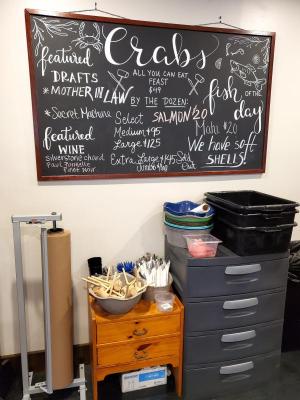 Crabs
ALL YOU CAN EAT
FEAST
$49
BY THE DOZEN:
Select
Medium $95
Large $125
Extra Large $145 Sold Out
Jumbo
featured
DRAFTS
*MOTHER IN LAW
*Secret Machine
featured
WINE
Silverstone chard
Pinot Noir
fish
OF THE
day
SALMON 20
Mahi $20
We have soft
SHELLS!